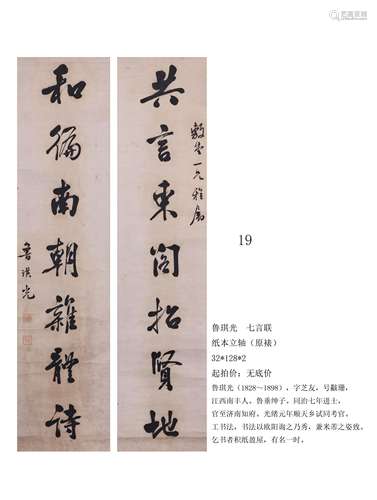 共言東閣招賢地
一兄雅屬
和徧南朝雜體詩
魯琪光
19
鲁琪光 七言联
纸本立轴（原裱）
32*128*2
起拍价：无底价
鲁琪光（1828～1898），字芝友，号黻珊，
江西南丰人。鲁垂绅子，同治七年进士，
官至济南知府。光绪元年顺天乡试同考官。
工书法，书法以欧阳询之乃秀，兼米芾之姿致。
乞书者积纸盈屋，有名一时。